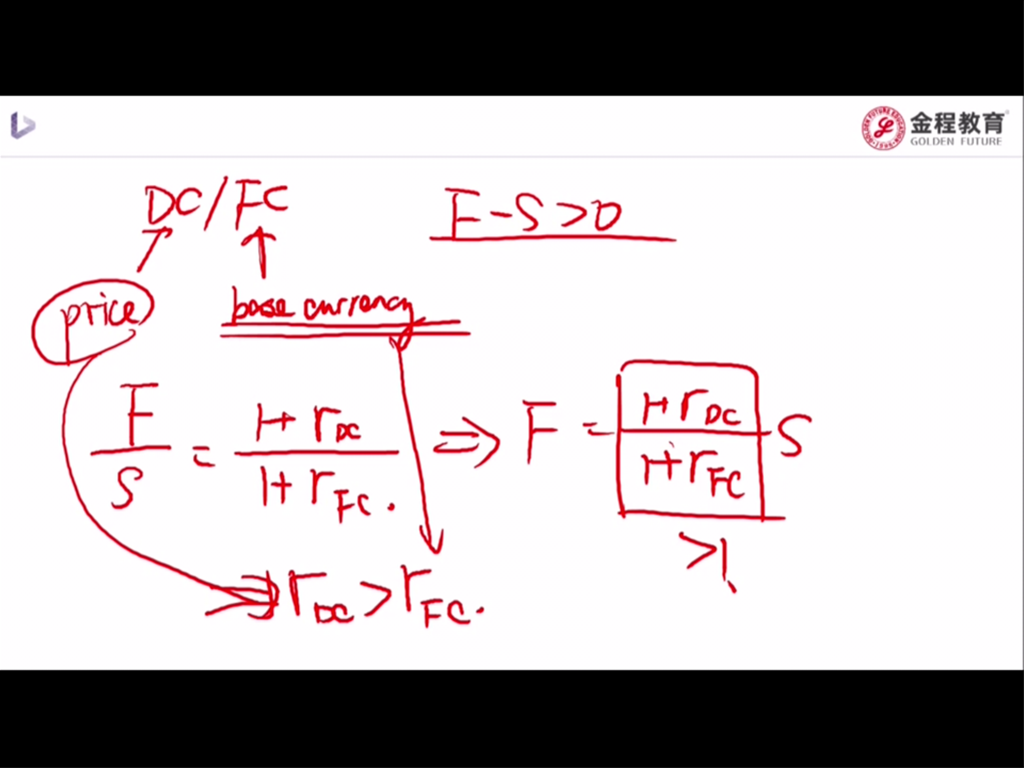 金程教育
GOLDEN FUTURE
DC/FC
F-S>0
price
base currency
F/S = 1+rDC / 1+rFC. ⇒ F = 1+rDC / 1+rFC S
>1.
⇒ rDC > rFC.